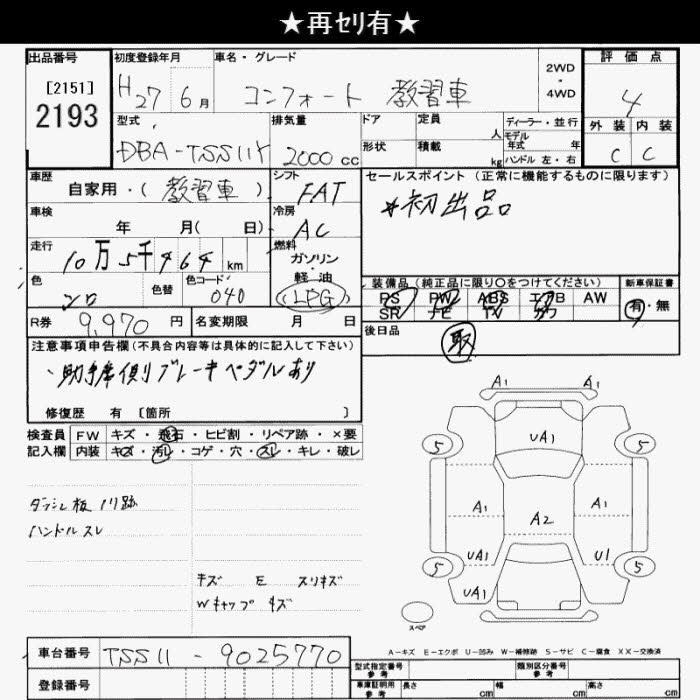 ★再セリ有★
出品番号
[2151]
2193
初度登録年月
H27 6月
車名・グレード
コンフォート 教習車
2WD
・
4WD
評価点
4
外装 内装
C C
型式
DBA-TSS11Y
排気量
2000 cc
ドア
形状
定員
人
積載
kg
ディーラー・並行
モデル年式 年
ハンドル 左・右
車歴
自家用・(教習車)
シフト
FAT
セールスポイント (正常に機能するものに限ります)
*初出品
車検
年 月( 日)
冷房
AC
走行
10万5千464 km
燃料
ガソリン
・
軽油
(LPG)
色
シロ
色替
色コード
040
装備品 (純正品に限り○をつけてください)
PS PW ABS エアB AW
SR ナビ TV カワ
新車保証書
有・無
R券
9,970 円
名変期限 月 日
後日品
取
注意事項申告欄(不具合内容等は具体的に記入して下さい)
、助手席側ブレーキペダルあり
修復歴 有 〔箇所 〕
検査員
記入欄
FW キズ・飛石・ヒビ割・リペア跡・×要
内装 キズ・汚レ・コゲ・穴・スレ・キレ・破レ
ダッシュ板 ノリ跡
ハンドル スレ
キズ E スリキズ
Wキャップ キズ
A1 A1
UA1
5 5
A1 A1
A2
UA1 U1
5 5
UA1
スペア
A-キズ E-エクボ U-凹み W-補修跡 S-サビ C-腐食 XX-交換済
車台番号
TSS11 - 9025770
登録番号
型式指定番号
参考
類別区分番号
参考
車庫証明用
参考
長さ cm
幅 cm
高さ cm